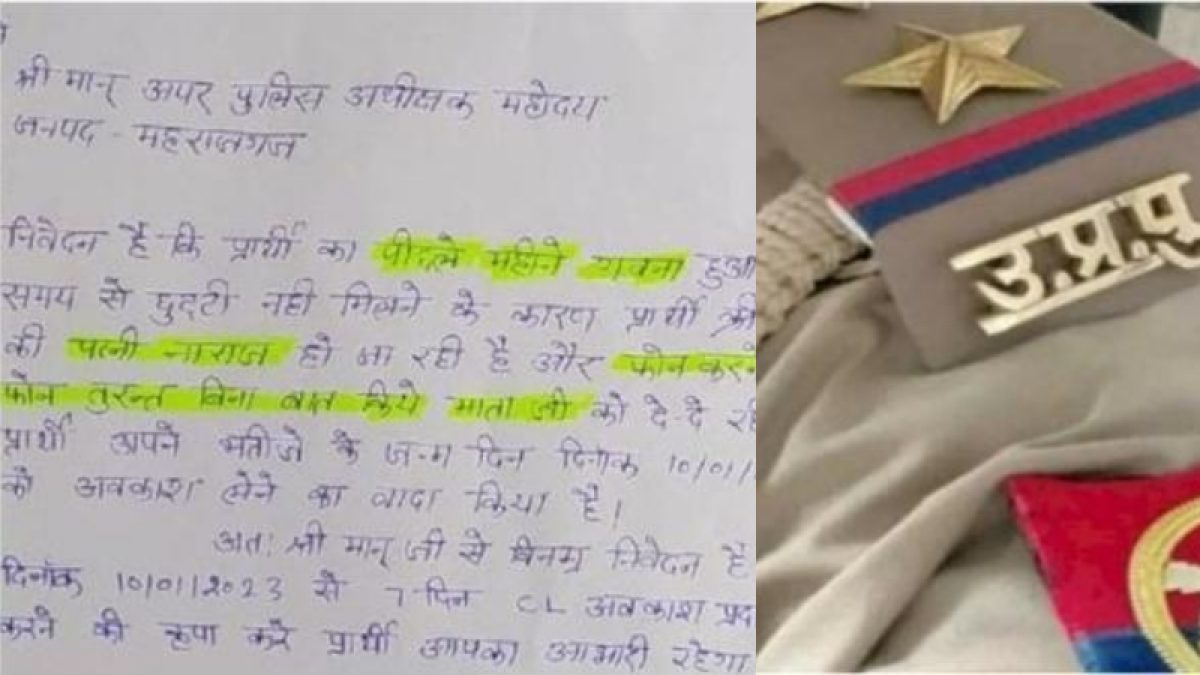 श्री मान् अपर पुलिस अधीक्षक महोदय
जनपद - महराजगंज
निवेदन है कि प्रार्थी का पीछले महीने गवना हुआ
समय से छुट्टी नही मिलने के कारण प्रार्थी
की पत्नी नाराज हो जा रही है और फोन करने
फोन तुरन्त बिना बात किये माता जी को दे-दे
प्रार्थी अपने भतीजे के जन्म दिन दिनांक 10/01/
को अवकाश लेने का वादा किया है।
अतः श्री मान् जी से विनम्र निवेदन है
दिनांक 10/01/2023 से 7 दिन CL अवकाश प्रद
करने की कृपा करे प्रार्थी आपका आभारी रहेगा
उ.प्र.पु